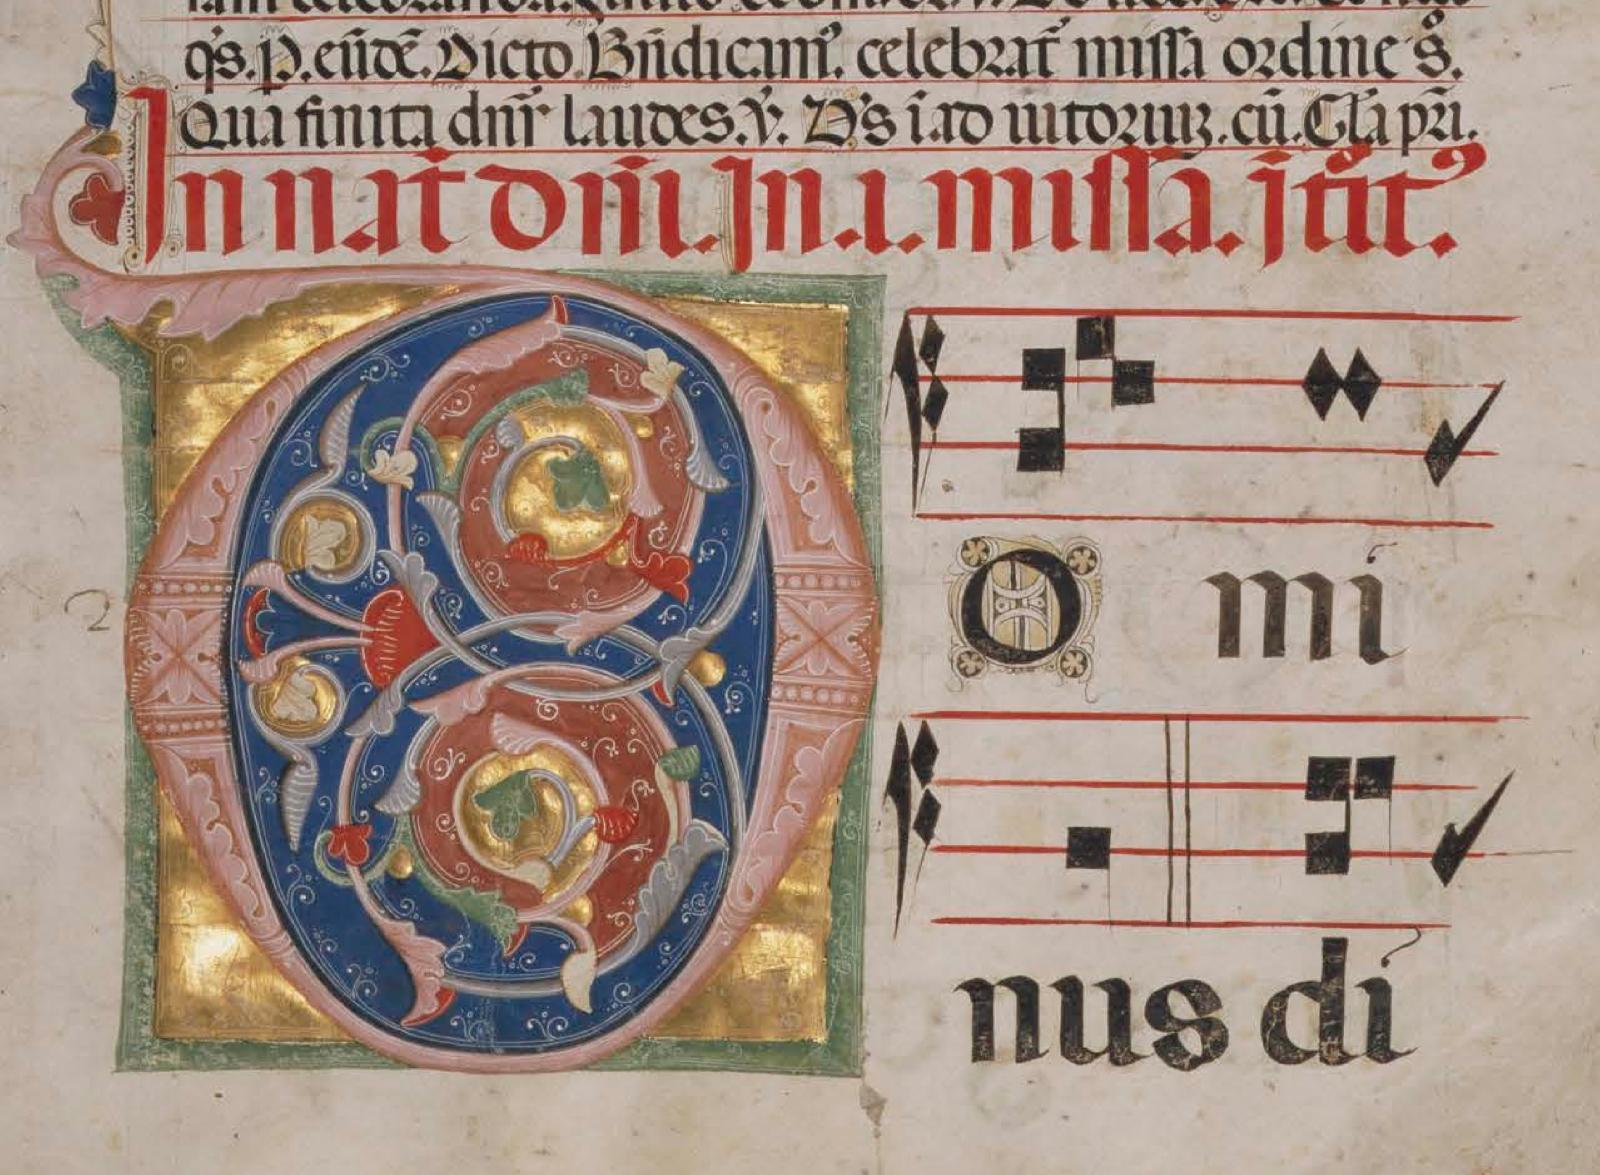 q̄s. p. eūdē. Dicto. Bn̄dicam᷒. celebrat̄ missa ordine s̊.
Qua finita dn̄r laudes. v̄. D's ī ad iutoriuꝫ. cū. Gl̄a pr̄i.
In nat̄ dn̄i. In .i. missa.ītīt᷒.
D O mi
2
nus di